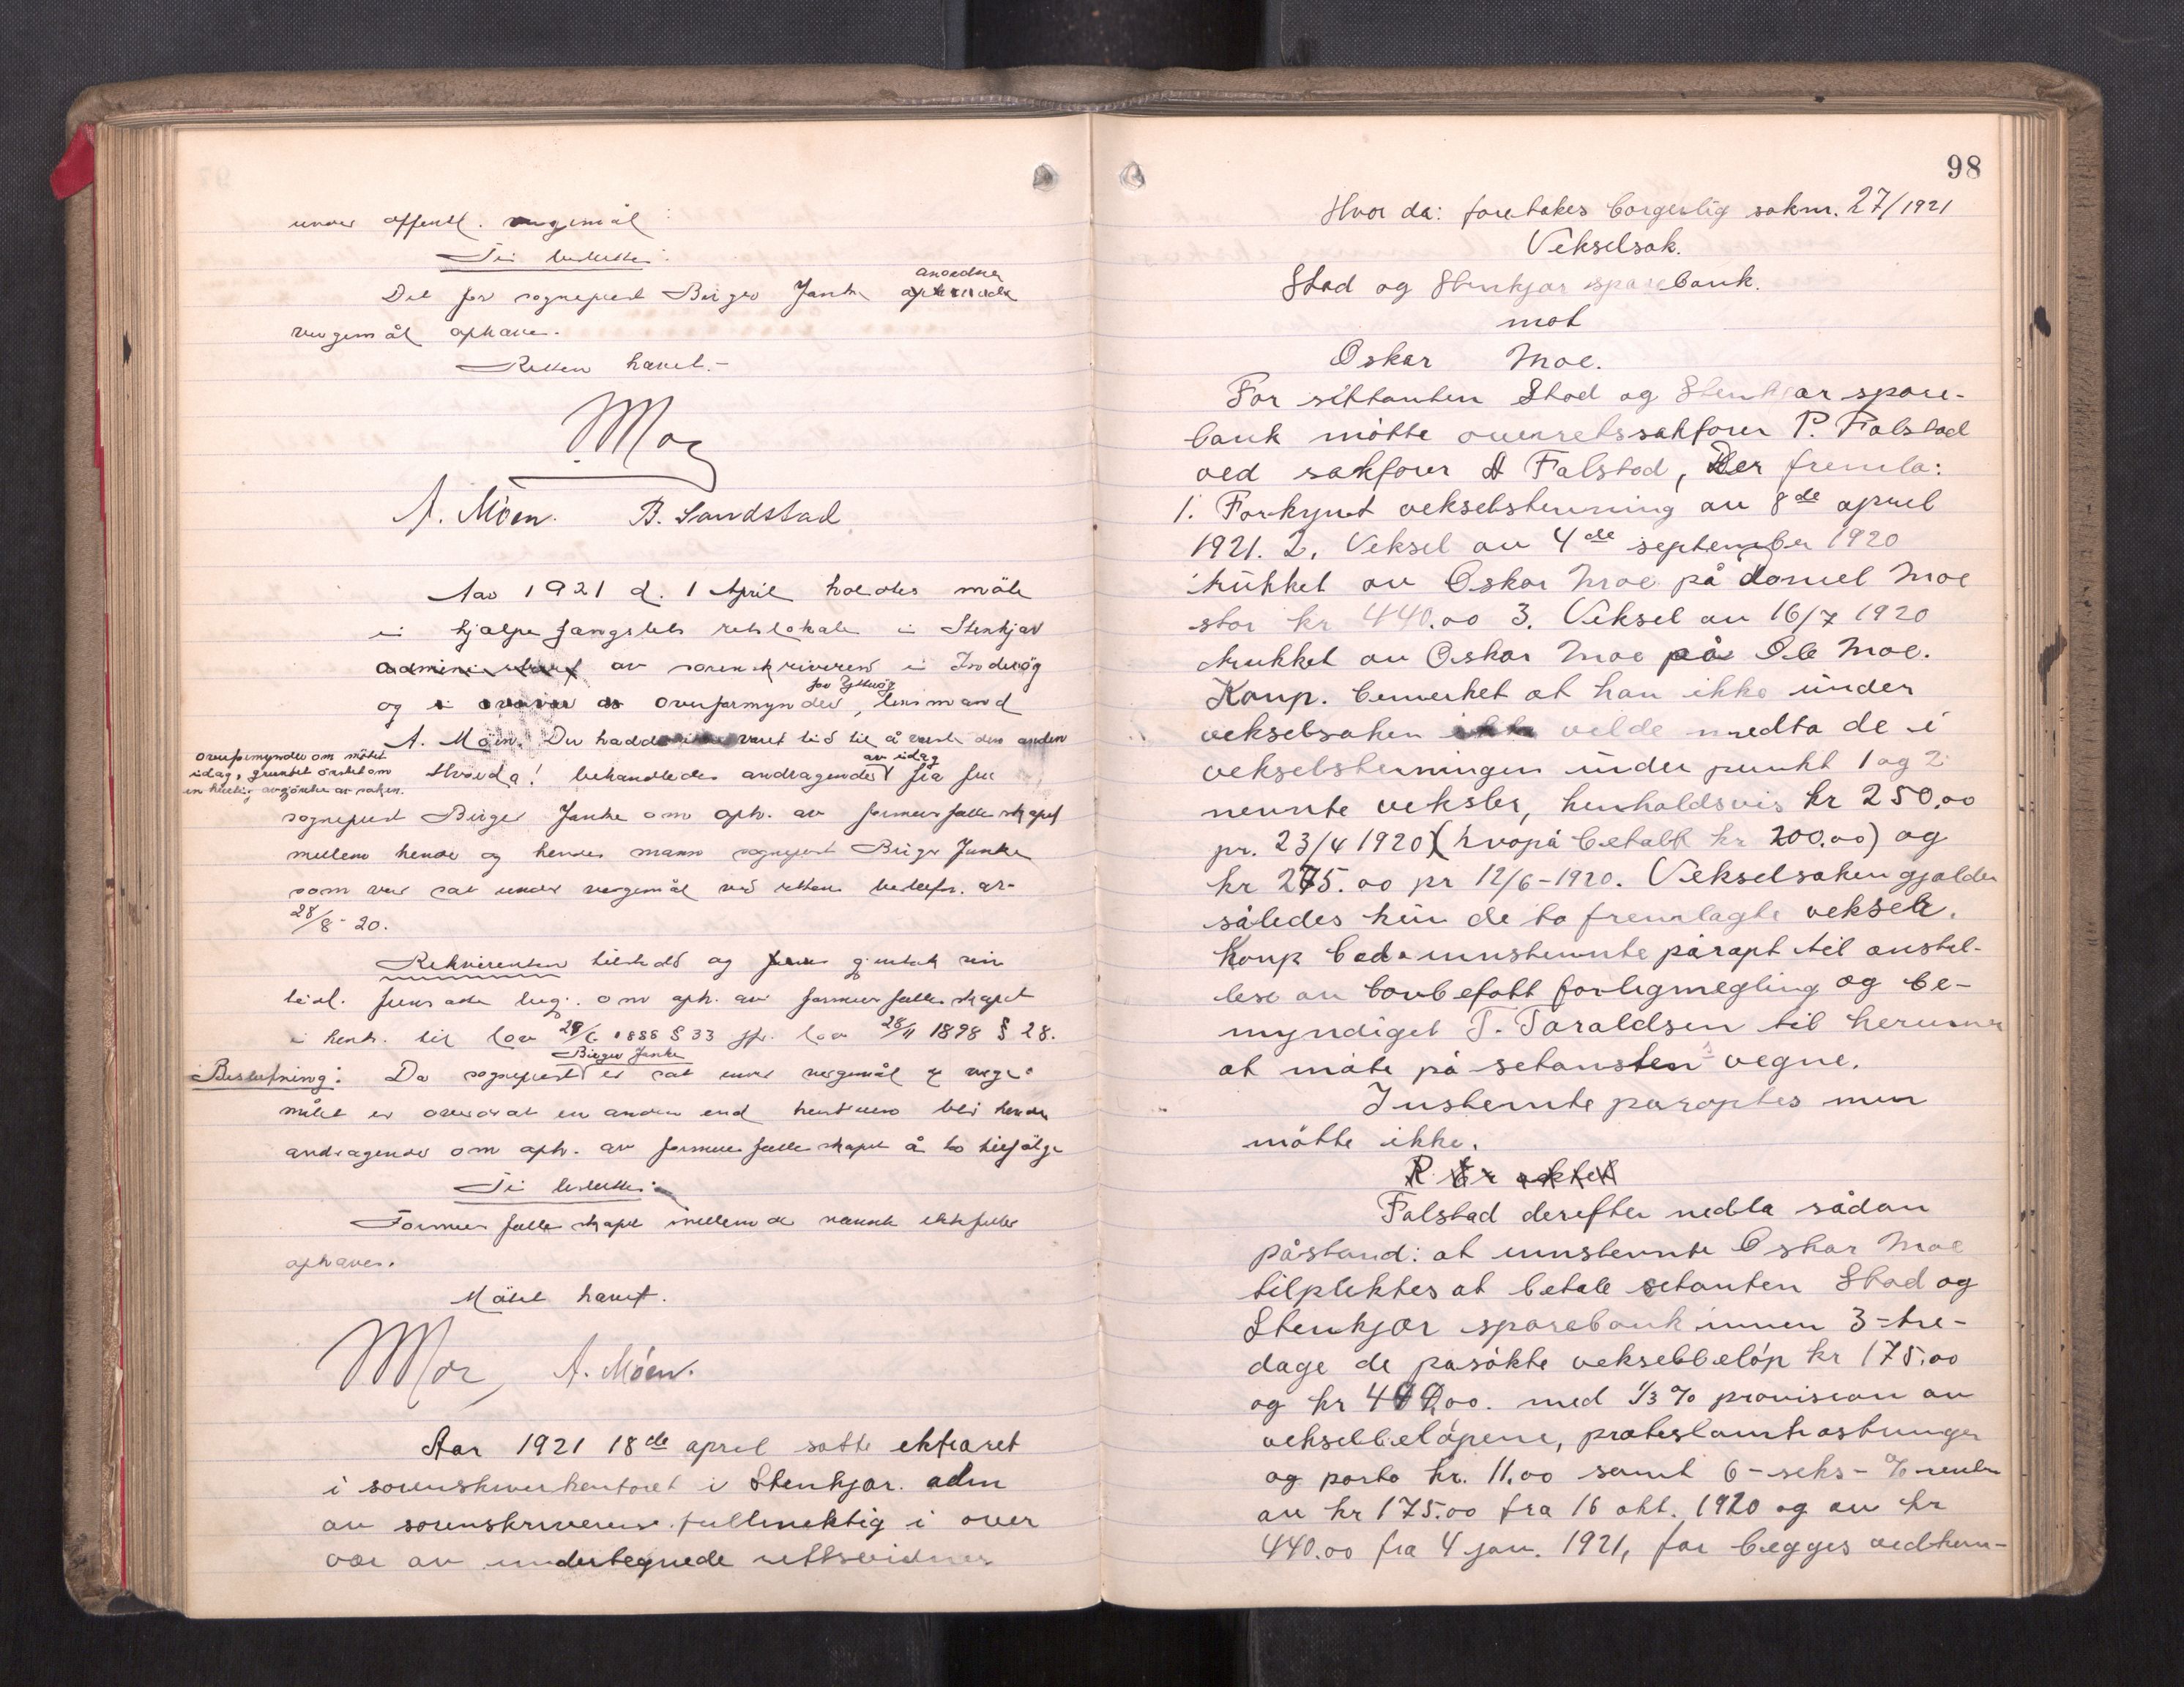 under offentl. vergemål:
Ti beslutte:
Det for sogneprest Birger Janke anordnede
vergemål ophæves.
Retten hævet.-
Moe
A. Möen. B. Sandstad
Aar 1921 d. 1 April holdtes möte
i hjælpefængslets retslokale i Stenkjær
administrert av sorenskriveren i Inderøg
og overformynder for Ytterøg, lensmand
A. Möen. Der hadde varet tid til å varsle den anden
overformynder om mötet
idag, grundet önsket om
en hurtig avgjörelse av saken.
Hvorda! behandledes andragende av idag fra fru
sogneprest Birger Janke om oph. av formuesfællesskapet
mellem hende og hendes mann sogneprest Birger Janke
som var sat under vergemål ved rettens beslutn. av
28/8-20.
Rekvirenten tilstede og gjentok sin
tidl. fremsatte beg. om oph. av formuesfællesskapet
i henh. til lov 29/6 1888 § 33 jfr. lov 28/11 1898 § 28.
Beslutning: Da sogneprest Birger Janke er sat under vergemål og verge-
målet er overdrat en anden end hustruen blir hendes
andragende om oph. av formuesfællesskapet å ta tilfölge
Ti besluttes:
Formuesfællesskapet mellem de nævnte ektefæller
ophæves.
Mötet hævet.
Moe A. Möen.
Aar 1921 18de april sattes ekstraret
i sorenskriverkontoret i Stenkjær. adm
av sorenskriverens fullmektig i over
vær av undertegnede rettsvidner
98
Hvor da: foretokes borgerlig saknr. 27/1921
Vekselsak.
Stod og Stenkjær sparebank.
mot
Oskar Moe.
For sittanten Stod og Stenkjær spare-
bank møtte overretssakfører P. Falstad
ved sakfører A Falstad, Der fremla:
1. Forkynt vekselstevning av 8de april
1921. 2. Veksel av 4de september 1920
trukket av Oskar Moe på Daniel Moe
stor kr 440.00 3. Veksel av 16/7 1920
trukket av Oskar Moe på Ole Moe.
Komp. bemerket at han ikke under
vekselsaken vilde medta de i
vekselstevningen under punkt 1 og 2
nevnte veksler, henholdsvis kr 250,00
pr. 23/4 1920 (hvorpå betalt kr 200.00) og
kr 275.00 pr 12/6-1920. Vekselsaken gjelder
således kun de to fremlagte veksler.
Komp bad innstevnte påropt til anstil-
lese av lovbefalt forligmegling og be-
myndiget T. Taraldsen til herunder
at møte på setansten vegne.
Instevnte paroptes men
møtte ikke.
Falstad derefter nedla sådan
påstand: at innstevnte Oskar Moe
tilpliktes at betale setanten Stod og
Stenkjær sparebank innen 3-tre-
dage de påsøkte vekselbeløp kr 175.00
og kr 440,00. med 1/3 % provision av
vekselbeløpene, protestomkostninger
og porto kr. 11.00 samt 6-seks- % renter
av kr 175.00 fra 16 okt. 1920 og av kr
440.00 fra 4 jan. 1921, for begges vedkom-